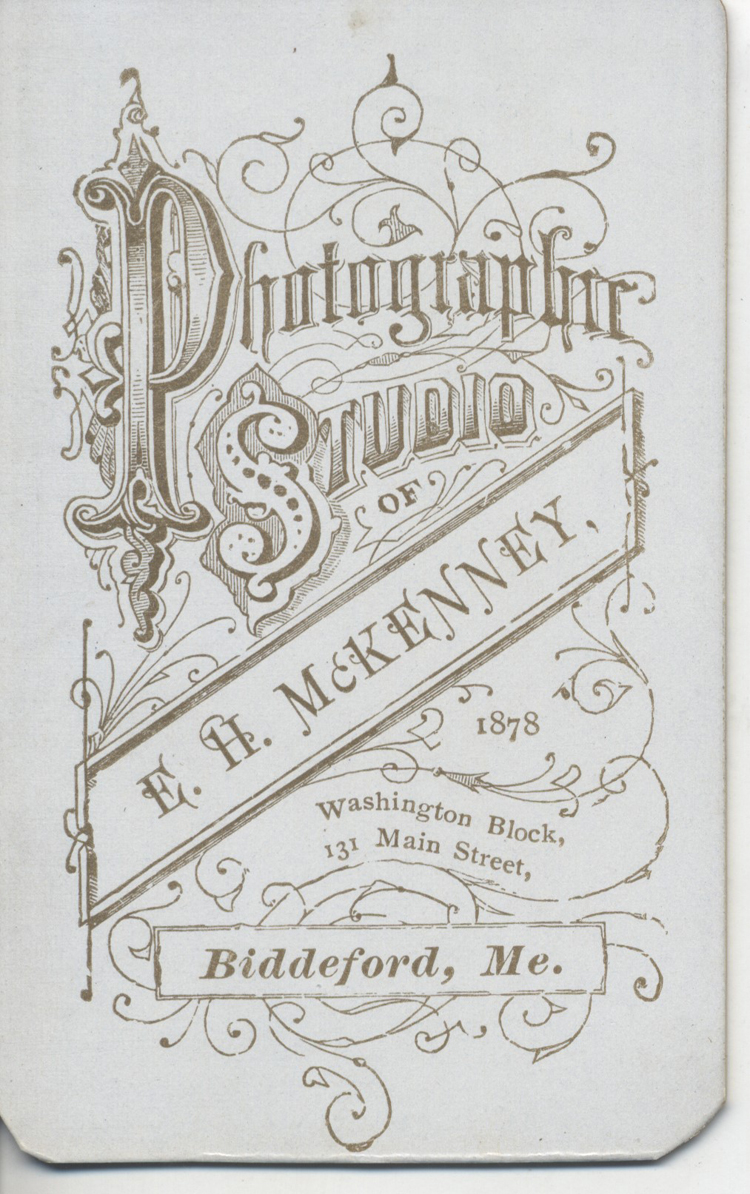 Photographic
STUDIO
OF
E. H. McKENNEY,
1878
Washington Block,
131 Main Street,
Biddeford, Me.